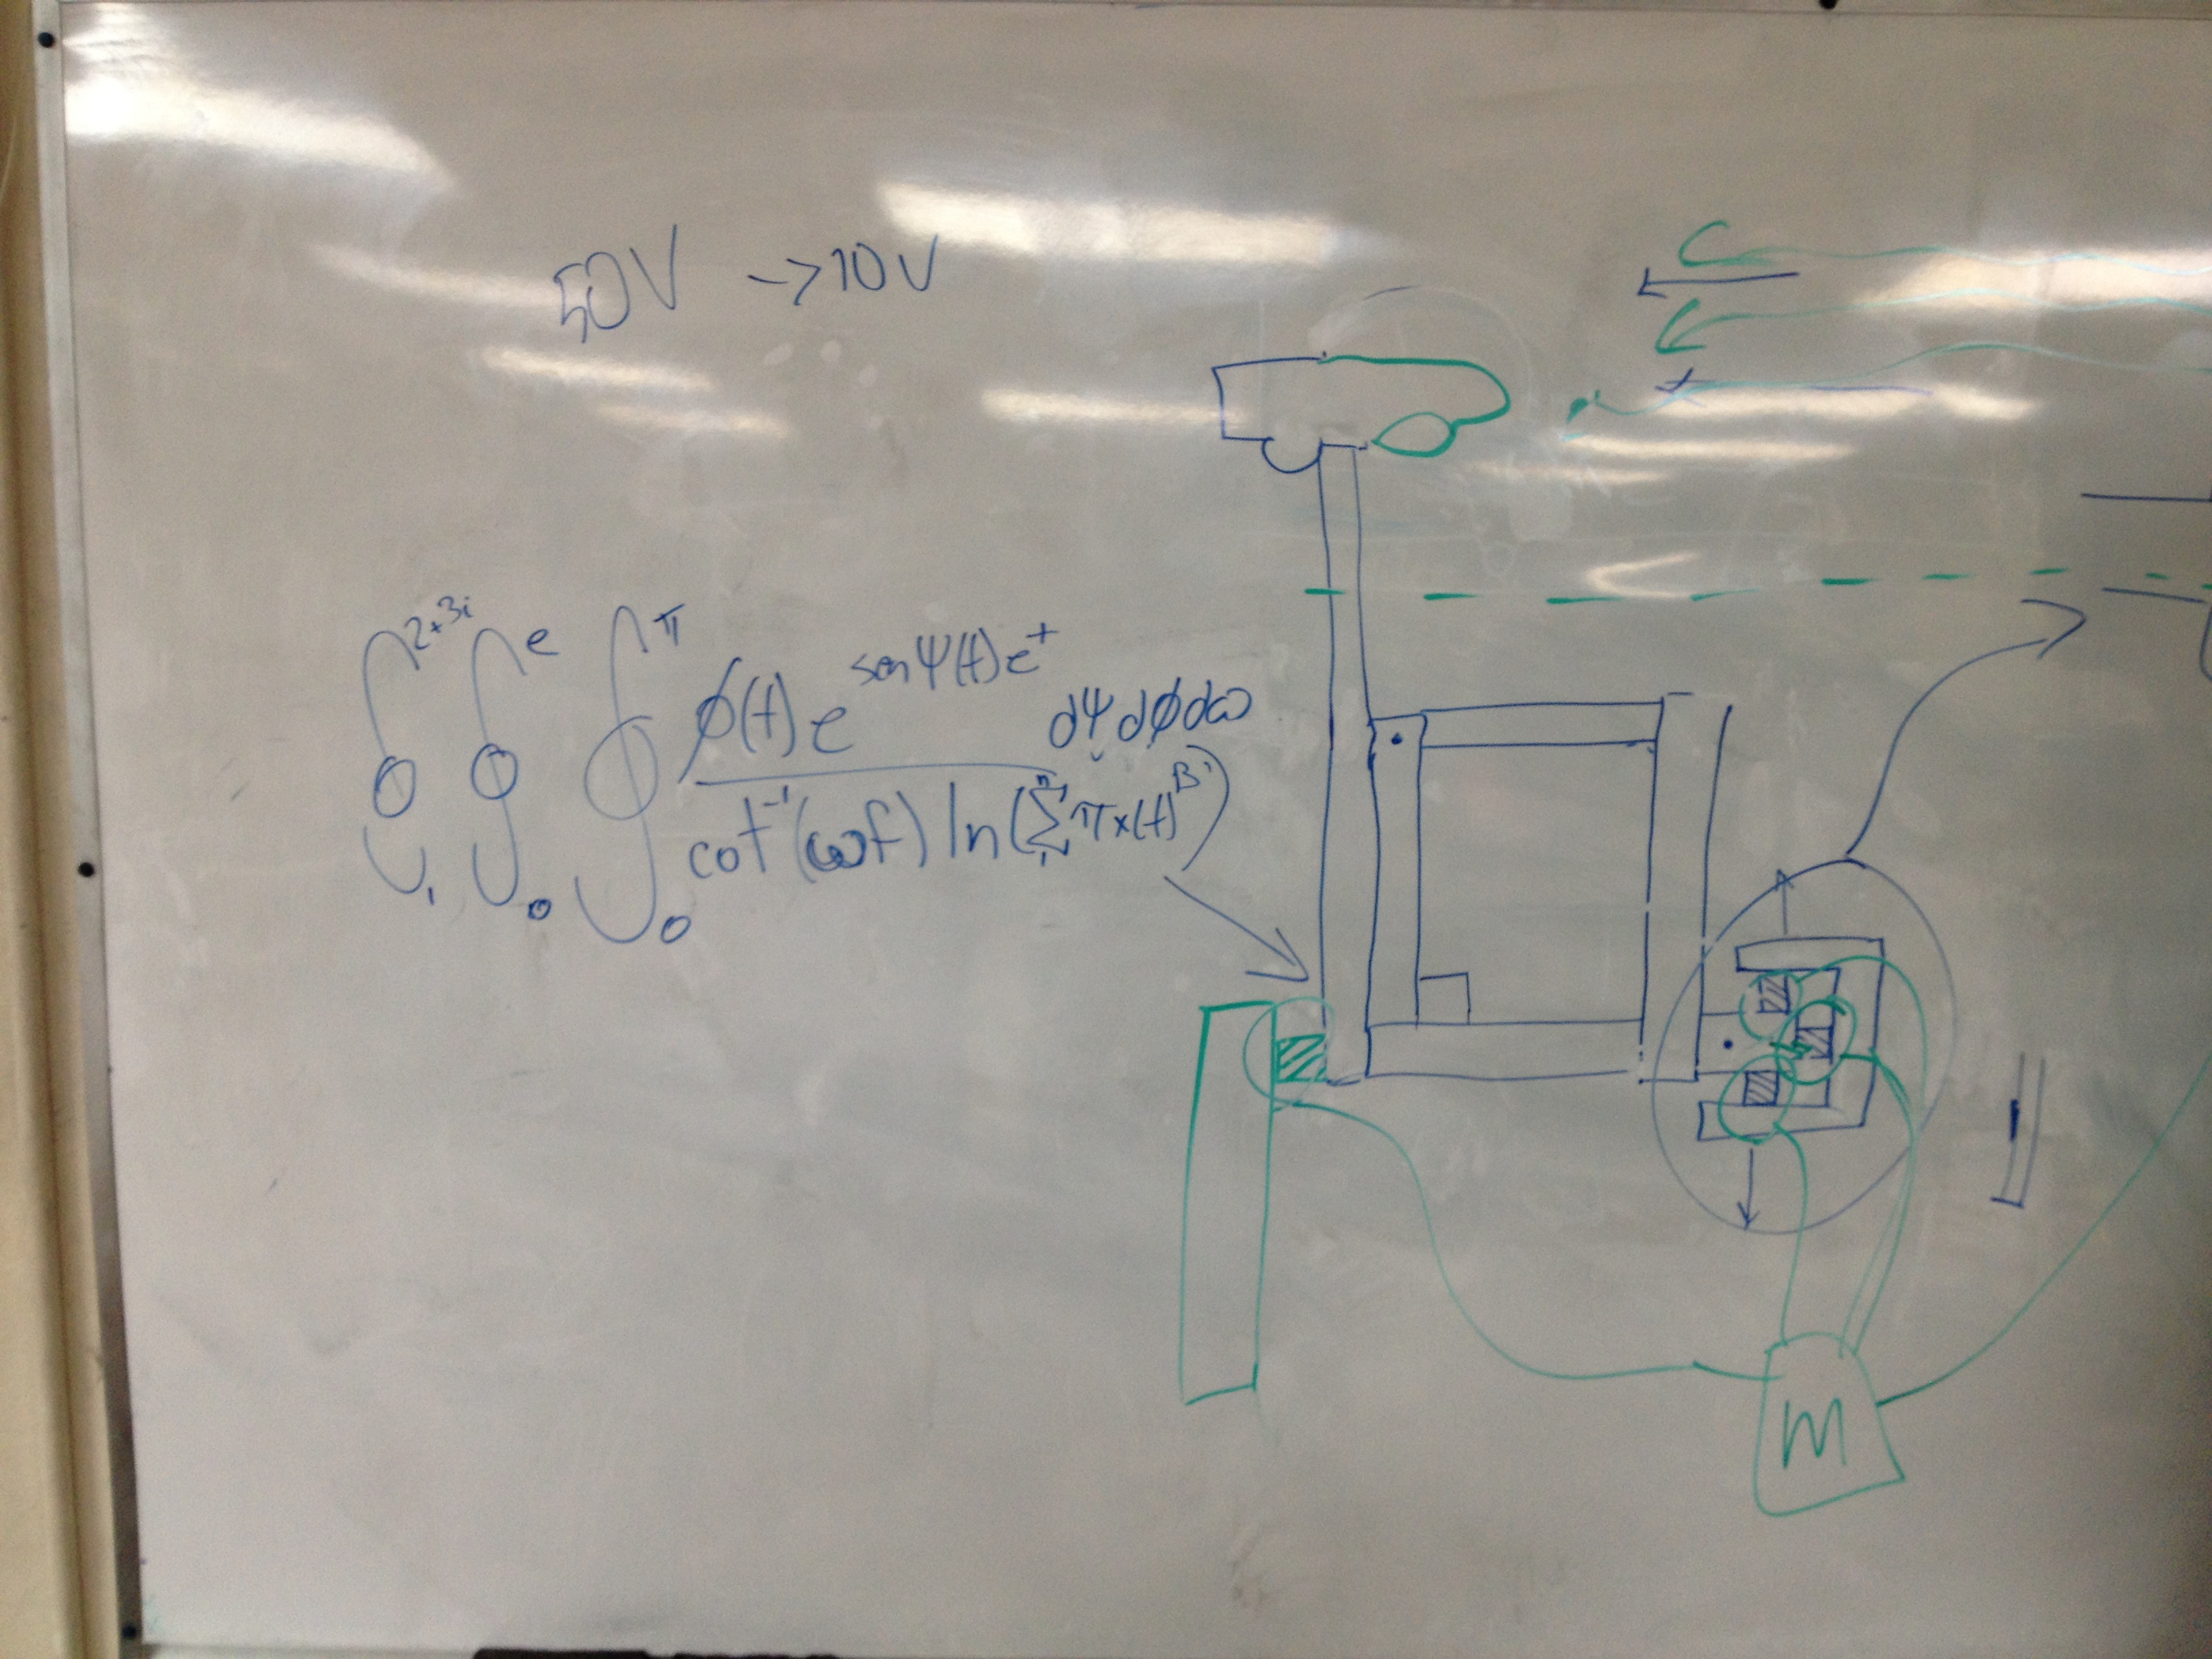 50V -> 10V
∮₁²⁺³ⁱ ∮₀ᵉ ∮₀^π ϕ(t) e^(sen Ψ(t) e^t) / (cot⁻¹(ωt) ln(∑₁ⁿ πx(t)^B)) dΨ dϕ dω
M